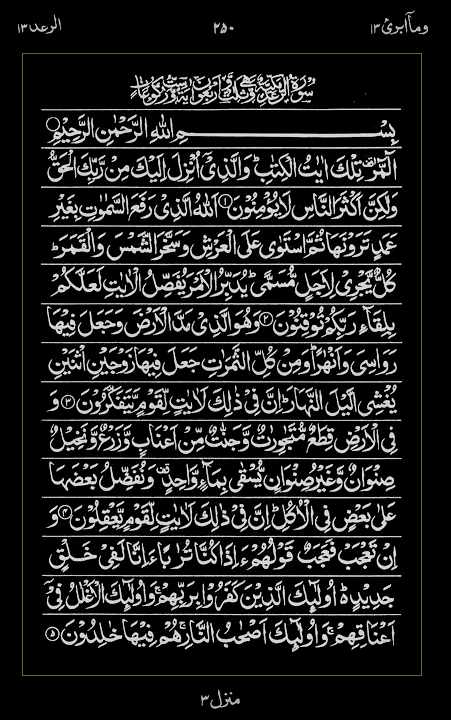 وماابرئ ١٣
٢٥٠
الرعد ١٣
بِسْمِ اللهِ الرَّحْمٰنِ الرَّحِيْمِ
الٓمّٓرٰ تِلْكَ اٰيٰتُ الْكِتٰبِ ؕ وَالَّذِیْۤ اُنْزِلَ اِلَيْكَ مِنْ رَّبِّكَ الْحَقُّ
وَلٰكِنَّ اَكْثَرَ النَّاسِ لَا يُؤْمِنُوْنَ ١ اَللهُ الَّذِیْ رَفَعَ السَّمٰوٰتِ بِغَيْرِ
عَمَدٍ تَرَوْنَهَا ثُمَّ اسْتَوٰی عَلَی الْعَرْشِ وَسَخَّرَ الشَّمْسَ وَالْقَمَرَ ؕ
كُلٌّ يَّجْرِیْ لِاَجَلٍ مُّسَمًّی ؕ يُدَبِّرُ الْاَمْرَ يُفَصِّلُ الْاٰيٰتِ لَعَلَّكُمْ
بِلِقَآءِ رَبِّكُمْ تُوْقِنُوْنَ ٢ وَهُوَ الَّذِیْ مَدَّ الْاَرْضَ وَجَعَلَ فِيْهَا
رَوَاسِیَ وَاَنْهٰرًا ؕ وَمِنْ كُلِّ الثَّمَرٰتِ جَعَلَ فِيْهَا زَوْجَيْنِ اثْنَيْنِ
يُغْشِی الَّيْلَ النَّهَارَ ؕ اِنَّ فِیْ ذٰلِكَ لَاٰيٰتٍ لِّقَوْمٍ يَّتَفَكَّرُوْنَ ٣ وَ
فِی الْاَرْضِ قِطَعٌ مُّتَجٰوِرٰتٌ وَّجَنّٰتٌ مِّنْ اَعْنَابٍ وَّزَرْعٌ وَّنَخِيْلٌ
صِنْوَانٌ وَّغَيْرُ صِنْوَانٍ يُّسْقٰی بِمَآءٍ وَّاحِدٍ وَنُفَضِّلُ بَعْضَهَا
عَلٰی بَعْضٍ فِی الْاُكُلِ ؕ اِنَّ فِیْ ذٰلِكَ لَاٰيٰتٍ لِّقَوْمٍ يَّعْقِلُوْنَ ٤ وَ
اِنْ تَعْجَبْ فَعَجَبٌ قَوْلُهُمْ ءَاِذَا كُنَّا تُرٰبًا ءَاِنَّا لَفِیْ خَلْقٍ
جَدِيْدٍ ؕ اُولٰٓئِكَ الَّذِيْنَ كَفَرُوْا بِرَبِّهِمْ ۚ وَاُولٰٓئِكَ الْاَغْلٰلُ فِیْۤ
اَعْنَاقِهِمْ ۚ وَاُولٰٓئِكَ اَصْحٰبُ النَّارِ ۚ هُمْ فِيْهَا خٰلِدُوْنَ ٥
منزل ٣